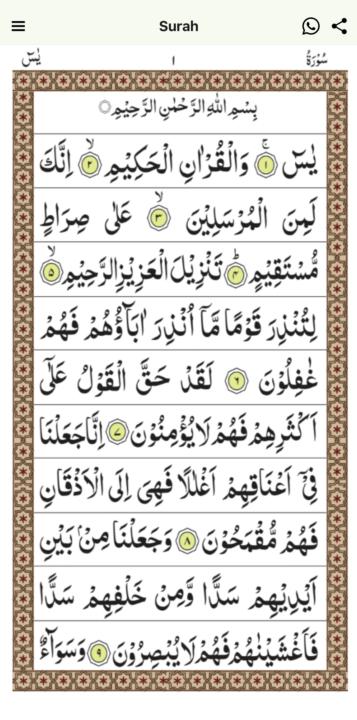 Surah
سُوْرَةُ ١ يٰسٓ
بِسْمِ اللّٰهِ الرَّحْمٰنِ الرَّحِيْمِ
يٰسٓ ۚ﴿١﴾ وَالْقُرْاٰنِ الْحَكِيْمِ ۙ﴿٢﴾ اِنَّكَ
لَمِنَ الْمُرْسَلِيْنَ ۙ﴿٣﴾ عَلٰى صِرَاطٍ
مُّسْتَقِيْمٍ ؕ﴿٤﴾ تَنْزِيْلَ الْعَزِيْزِ الرَّحِيْمِ ۙ﴿٥﴾
لِتُنْذِرَ قَوْمًا مَّاۤ اُنْذِرَ اٰبَآؤُهُمْ فَهُمْ
غٰفِلُوْنَ ﴿٦﴾ لَقَدْ حَقَّ الْقَوْلُ عَلٰٓى
اَكْثَرِهِمْ فَهُمْ لَا يُؤْمِنُوْنَ ﴿٧﴾ اِنَّا جَعَلْنَا
فِيْۤ اَعْنَاقِهِمْ اَغْلٰلًا فَهِىَ اِلَى الْاَذْقَانِ
فَهُمْ مُّقْمَحُوْنَ ﴿٨﴾ وَجَعَلْنَا مِنْۢ بَيْنِ
اَيْدِيْهِمْ سَدًّا وَّمِنْ خَلْفِهِمْ سَدًّا
فَاَغْشَيْنٰهُمْ فَهُمْ لَا يُبْصِرُوْنَ ﴿٩﴾ وَسَوَآءٌ